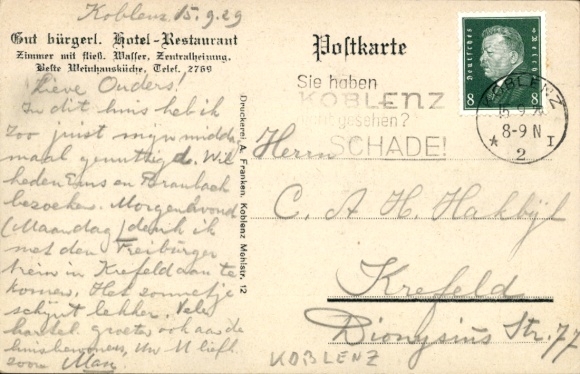 Koblenz 15.9.29
Gut bürgerl. Hotel-Restaurant
Zimmer mit fließ. Wasser, Zentralheizung.
Beste Weinhausküche, Telef. 2769
Lieve Ouders!
In dit huis heb ik
zoo juist mijn middag
maal genuttigd. Wil
heden Ems en Braubach
bezoeken. Morgenavond
(Maandag) denk ik
met den Freiburger
trein in Krefeld aan te
komen. Het zonnetje
schijnt lekker. Vele
hartel. groeten ook aan de
huisbewoners, Uw U liefh.
zoon Max
Druckerei A. Franken, Koblenz Mehlstr. 12
Postkarte
Sie haben
KOBLENZ
nicht gesehen?
SCHADE!
Deutsches Reich
8 8
KOBLENZ
15.9.29
8-9 N
* 2 I
Herrn
C. A. H. Hakbijl
Krefeld
Dionysius Str. 77
KOBLENZ